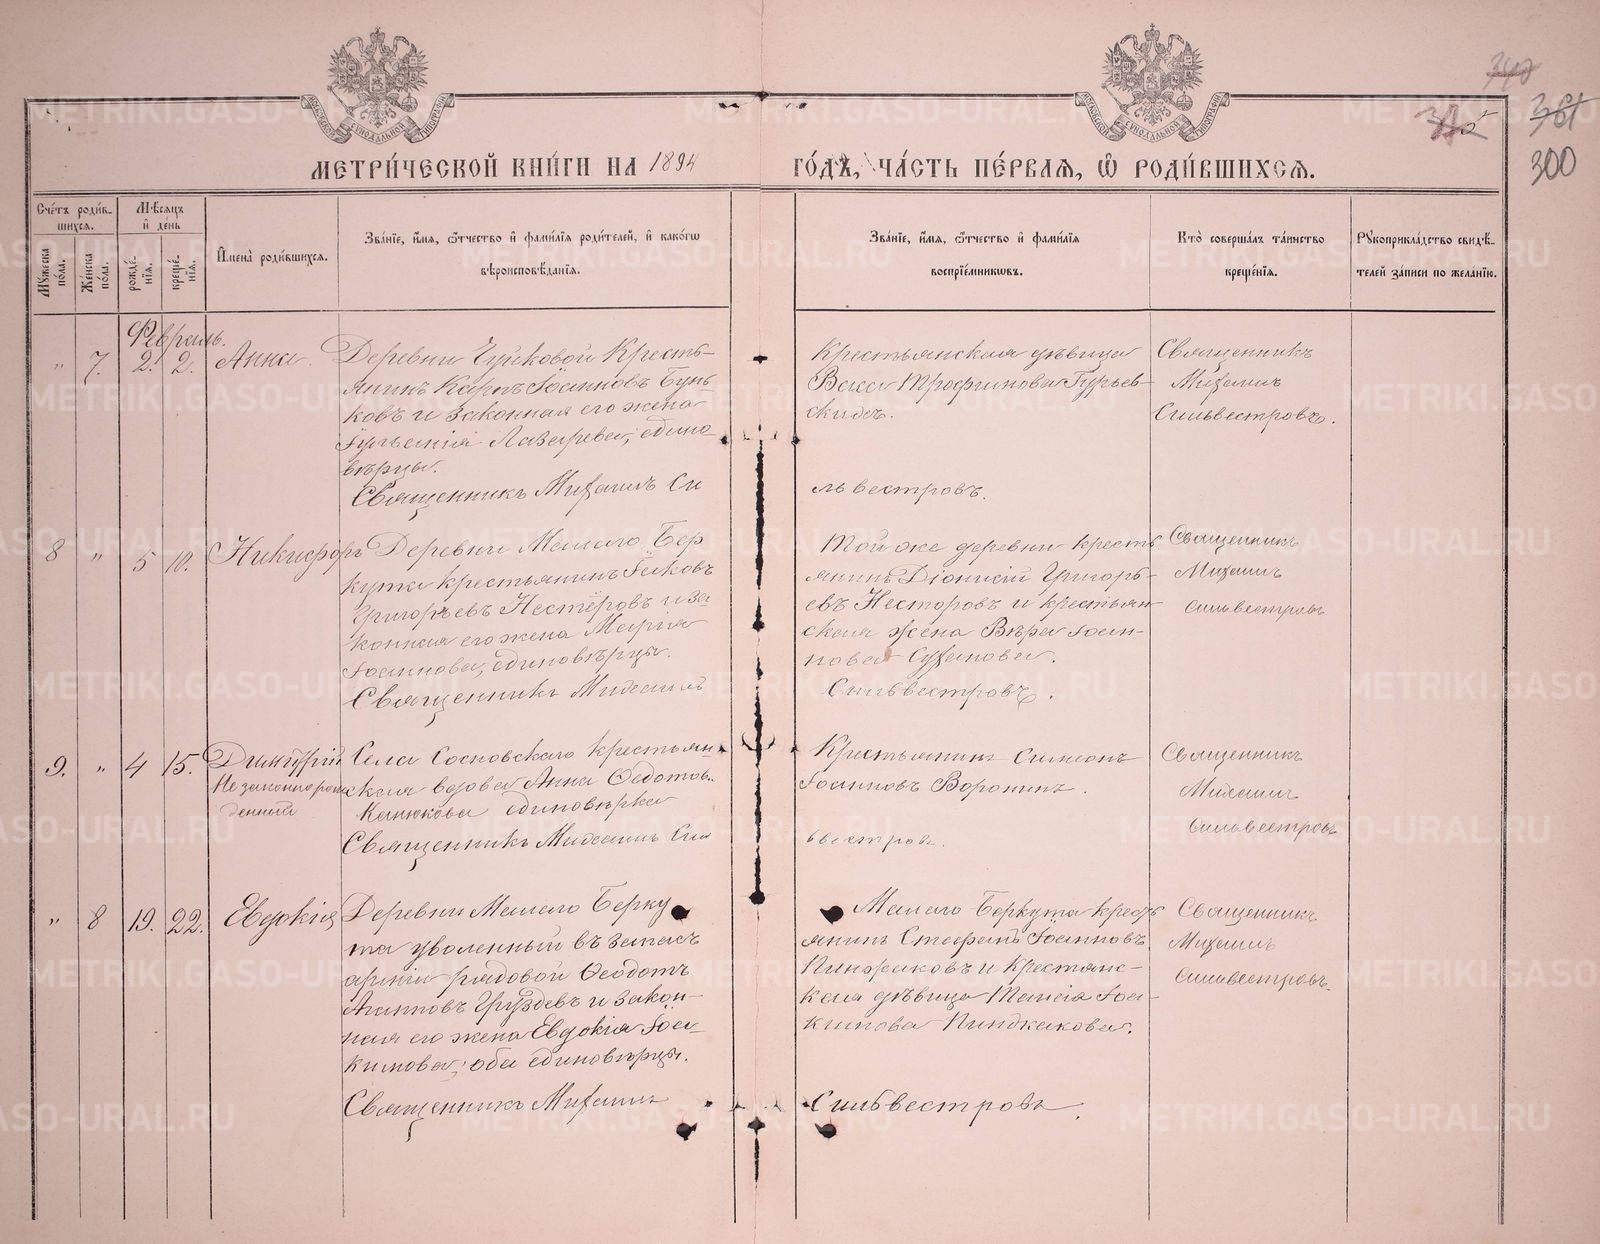 340
315
361
300
МЕТРИ́ЧЕСКОЙ КНИ́ГИ НА 1894 ГО́ДЪ, ЧА́СТЬ ПЕ́РВАЯ, Ѡ҆ РОДИ́ВШИХСЯ.
Сче́тъ роди́в-
шихся.
Мꙋ́жеска по́ла.
Же́нска по́ла.
Мѣ́сяцъ и҆ де́нь
рожде́-
нїя.
креще́-
нїя.
И҆мена̀ роди́вшихся.
Зва́нїе, и҆́мя, ѻ҆́тчество и҆ фами́лїя роди́телей, и҆ како́гѡ
вѣроисповѣ́данїя.
Зва́нїе, и҆́мя, ѻ҆́тчество и҆ фами́лїя
воспрїе́мникѡвъ.
Кто̀ соверша́лъ та́инство
креще́нїя.
Рꙋкоприкла́дство свидѣ́-
телей за́писи по жела́нїю.
Февраль.
" 7. 2. 2. Анна
Деревни Чуйковой Кресть-
янинъ Карпъ Іоанновъ Бунь-
ковъ и законная его жена
Гульенія Лазарева, едино
вѣрцы.
Священникъ Михаилъ Си
Крестьянская дѣвица
Васса Трофимова Гурьев-
скихъ.
львестровъ.
Священникъ
Михаилъ
Сильвестровъ.
8 " 5 10. Никифоръ
Деревни Малаго Бер
кута крестьянинъ Іаковъ
Григорьевъ Нестёровъ и за
конная его жена Марія
Іоаннова, единовѣрцы.
Священникъ Михаилъ
Той же деревни кресть
янинъ Діонисій Григорь-
евъ Несторовъ и крестьян
ская жена Вѣра Іоан-
нова Суханова.
Сильвестровъ.
Священникъ
Михаилъ
Сильвестровъ
9. " 4 15. Димитрій
Незаконнорож
денный
Села Сосновскаго крестьян-
ская вдова Анна Ѳедотов..
Канюкова единовѣрка
Священникъ Михаилъ Сил
Крестьянинъ Симеонъ
Іоанновъ Воронинъ.
ьвестровъ.
Священникъ
Михаилъ
Сильвестровъ
" 8 19. 22. Евдокія
Деревни Малаго Берку
та уволенный въ запасъ
арміи рядовой Ѳеодотъ
Агаповъ Груздевъ и закон-
ная его жена Евдокія Іоа-
кимова, оба единовѣрцы.
Священникъ Михаилъ
Малаго Беркута кресть
янинъ Стефанъ Іоанновъ
Пинжаковъ и Крестянс-
кая дѣвица Таисія Іоа-
кимова Пинджакова.
Сильвестровъ.
Священникъ
Михаилъ
Сильвестровъ.
METRIKI.GASO-URAL.RU